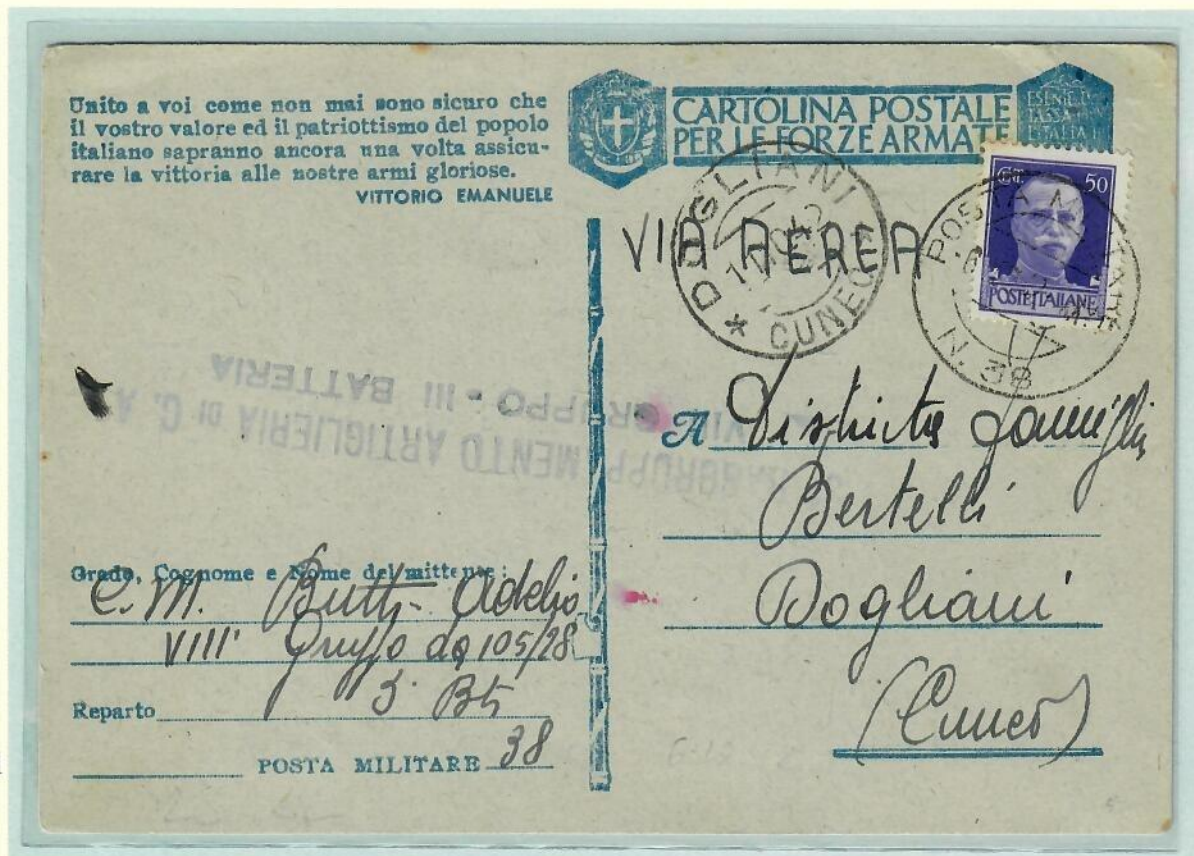 Unito a voi come non mai sono sicuro che
il vostro valore ed il patriottismo del popolo
italiano sapranno ancora una volta assicu-
rare la vittoria alle nostre armi gloriose.
VITTORIO EMANUELE
CARTOLINA POSTALE
PER LE FORZE ARMATE
CT. 50
POSTE ITALIANE
POSTA MILITARE
N. 38
DOGLIANI
CUNEO
VIA AEREA
RAGGRUPPAMENTO ARTIGLIERIA DI G. A.
GRUPPO - III BATTERIA
A Distinta Famiglia
Bertelli
Dogliani
(Cuneo)
Grado, Cognome e Nome del mittente:
C. M. Butti Adelio
VIII' Gruppo da 105/28
Reparto 3' Bt
POSTA MILITARE 38